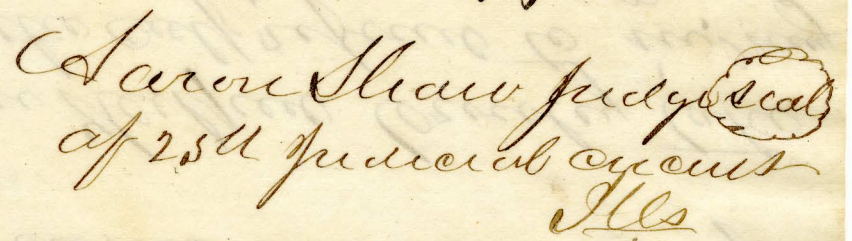 Aaron Shaw Judge seal
of 25th Judicial circuit
Ills